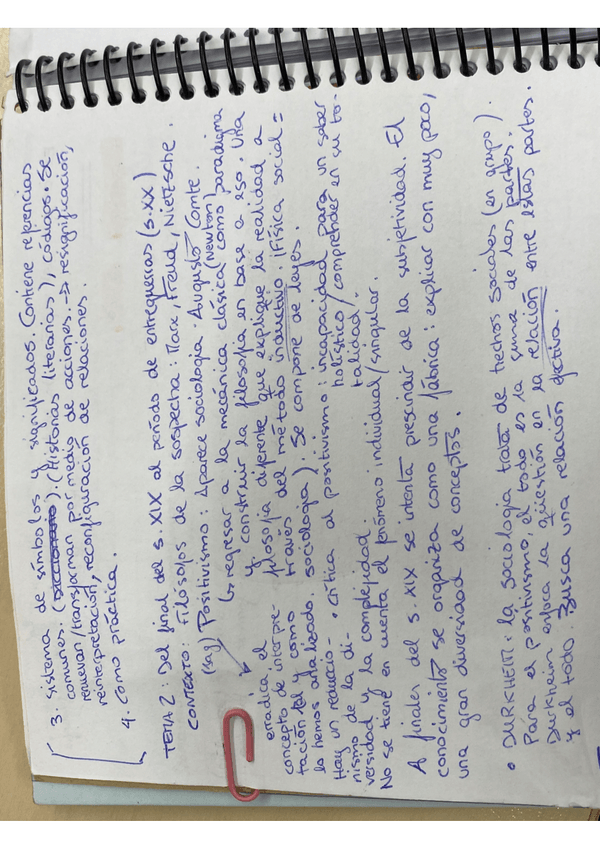 3. Sistema de símbolos y significados. Contiene referencias
comunes. (Diccionario). (Historias literarias), códigos. Se
renuevan/transforman por medio de acciones. -> resignificación,
reinterpretación, reconfiguración de relaciones.
4. Como práctica.
TEMA 2: Del final del s. XIX al período de entreguerras (s. XX)
CONTEXTO: Filósofos de la sospecha: Marx, Freud, Nietzsche.
Positivismo: Aparece sociología. Augusto Comte.
↳ regresar a la mecánica clásica (Newton) como paradigma
y construir la filosofía en base a eso. Una
filosofía diferente que explique la realidad a
través del método inductivo (Física social =
sociología). Se compone de leyes.
erradica el
concepto de interpre-
tación tal y como
lo hemos analizado.
Hay un reduccio-
nismo de la di-
versidad y la complejidad.
• crítica al positivismo: incapacidad para un saber
holístico/comprehender en su to-
talidad.
No se tiene en cuenta el fenómeno individual/singular.
A finales del s. XIX se intenta prescindir de la subjetividad. El
conocimiento se organiza como una fábrica: explicar con muy poco,
una gran diversidad de conceptos.
• DURKHEIM: la sociología trata de hechos sociales (en grupo).
Para el positivismo, el todo es la suma de las partes.
Durkheim enfoca la cuestión en la relación entre estas partes.
y el todo. Busca una relación efectiva.